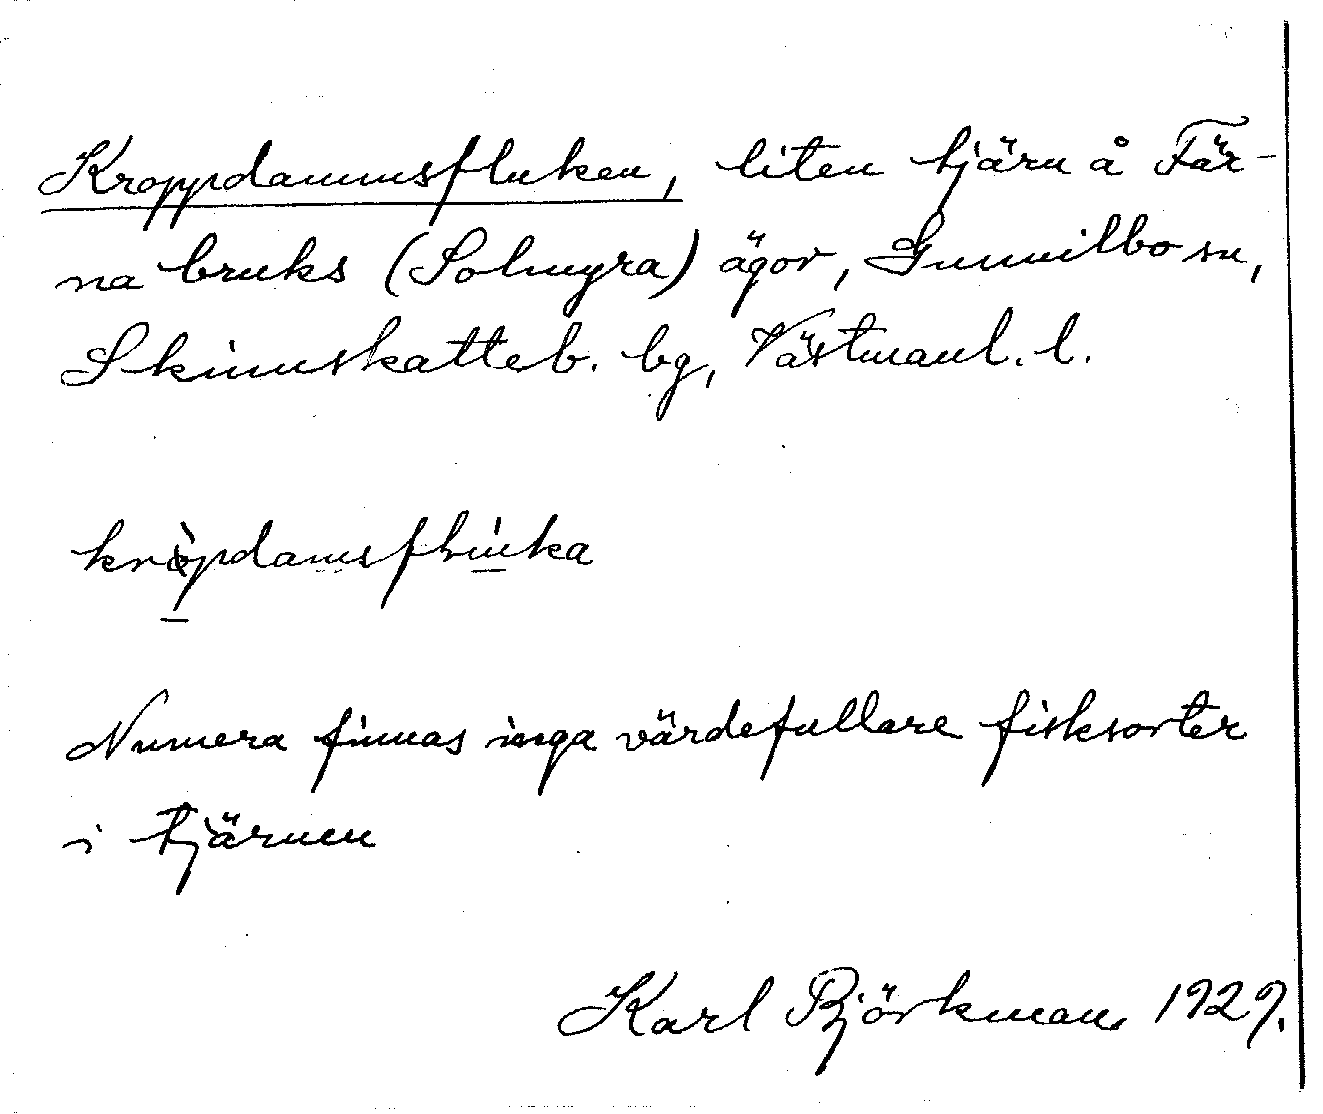 Kroppdammsfluken, liten tjärn å Fär-
na bruks (Solmyra) ägor, Gunnilbo sn,
Skinnskatteb. bg, Västmanl. l.
kròpdamsflúka
Numera finnas inga värdefullare fisksorter
i tjärnen
Karl Björkman 1929.